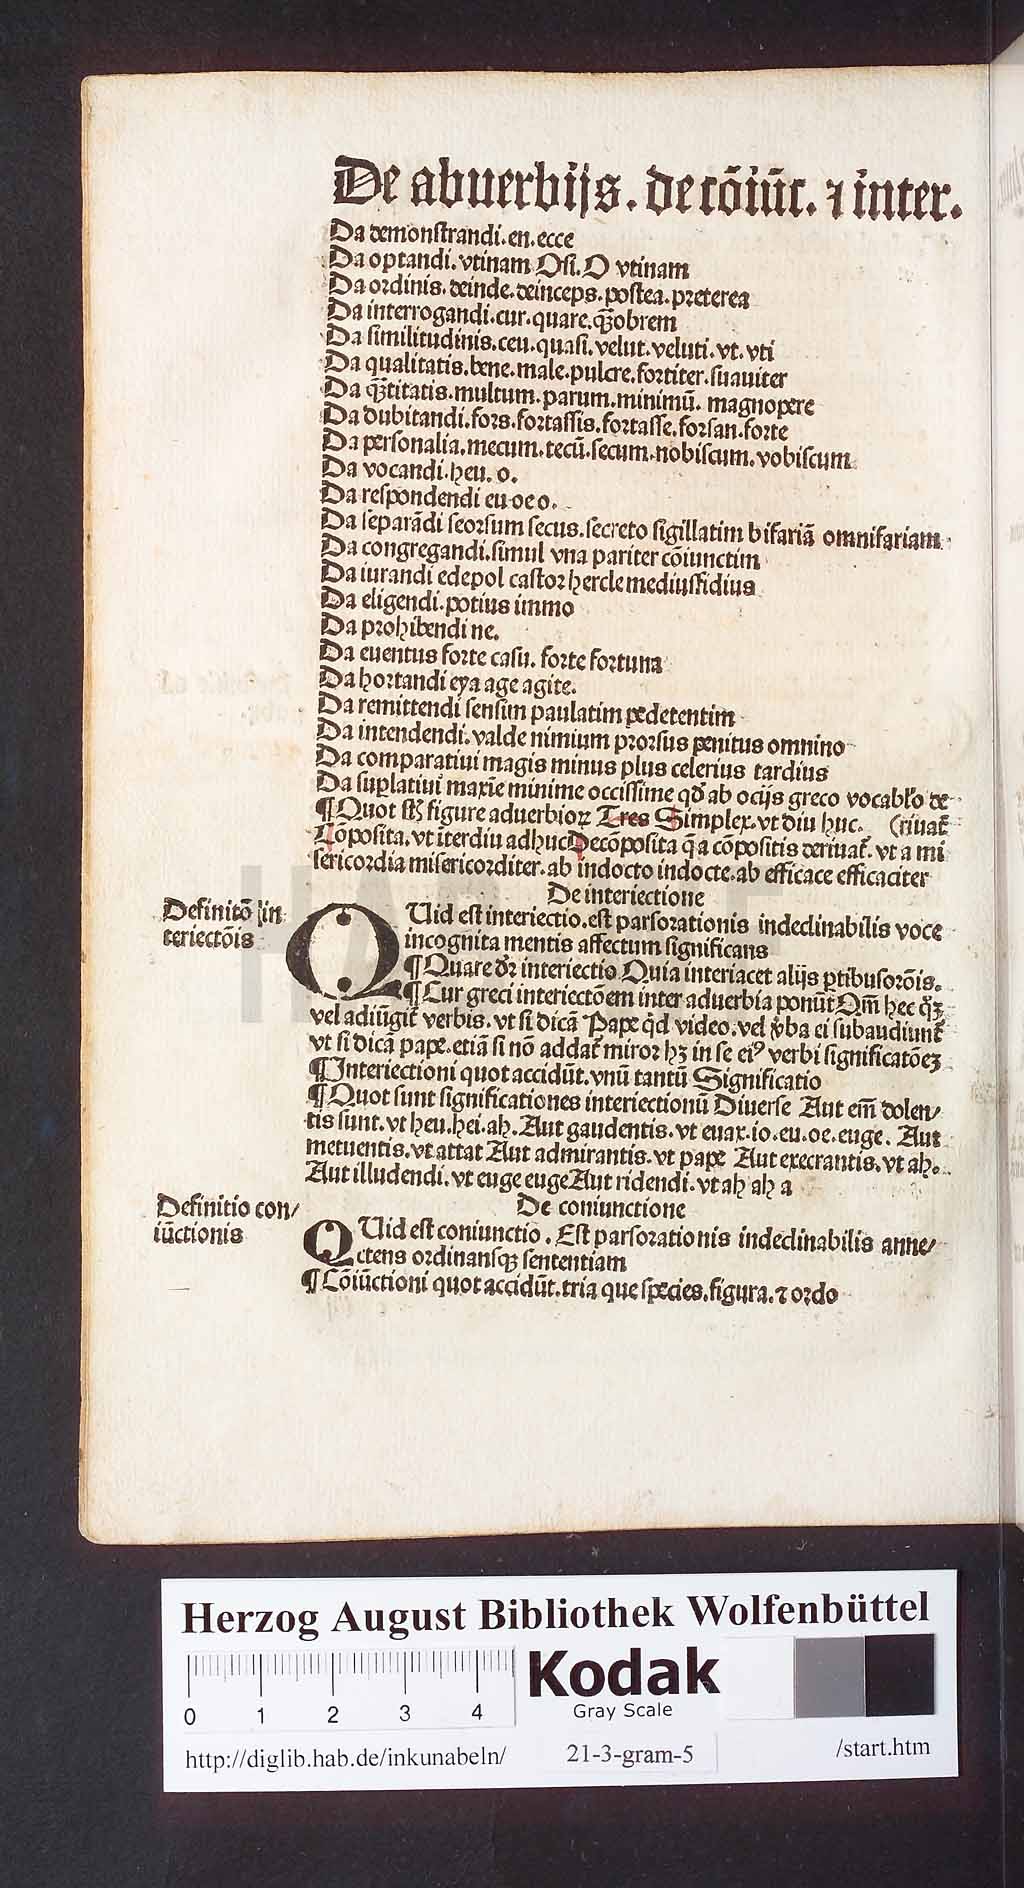 De aduerbijs. de cōiūc. ⁊ inter.
Da demonstrandi. en. ecce
Da optandi. vtinam Osi. O vtinam
Da ordinis. deinde. deinceps. postea. preterea
Da interrogandi. cur. quare. qȝobrem
Da similitudinis. ceu. quasi. velut. veluti. vt. vti
Da qualitatis. bene. male. pulcre. fortiter. suauiter
Da qȝtitatis. multum. parum. minimū. magnopere
Da dubitandi. fors. fortassis. fortasse. forsan. forte
Da personalia. mecum. tecū. secum. nobiscum. vobiscum
Da vocandi. heu. o.
Da respondendi eu oe o.
Da separādi seorsum secus. secreto sigillatim bifariā omnifariam
Da congregandi. simul vna pariter cōiunctim
Da iurandi edepol castor hercle mediussidius
Da eligendi. potius immo
Da prohibendi ne.
Da euentus forte casu. forte fortuna
Da hortandi eya age agite.
Da remittendi sensim paulatim pedetentim
Da intendendi. valde nimium prorsus penitus omnino
Da comparatiui magis minus plus celerius tardius
Da suꝑlatiui maxīe minime occissime qd̄ ab ocijs greco vocabl'o de
¶ Quot st̄ figure aduerbioꝝ Tres Simplex. vt diu huc. (riuat̄
Cōposita. vt īterdiu adhuc Decōposita q̄ a cōpositis deriuat̄. vt a mi
sericordia misericorditer. ab indocto indocte. ab efficace efficaciter
De interiectione
Definitō in
teriectōis
QUid est interiectio. est pars orationis indeclinabilis voce
incognita mentis affectum significans
¶ Quare dr̄ interiectio Quia interiacet alijs ꝑtibus orōis.
¶ Cur greci interiectōem inter aduerbia ponūt Qm̄ hec q̄ꝫ
vel adiūgit̄ verbis. vt si dicā Pape qd̄ video. vel v̄ba ei subaudiunt̄
vt si dicā pape. etiā si nō addat̄ miror hꝫ in se eiꝰ verbi significatōeꝫ
¶ Interiectioni quot accidūt. vnū tantū Significatio
¶ Quot sunt significationes interiectionū Diuerse Aut em̄ dolen/
tis sunt. vt heu. hei. ah. Aut gaudentis. vt euax. io. eu. oe. euge. Aut
metuentis. vt attat Aut admirantis. vt pape Aut execrantis. vt ah.
Aut illudendi. vt euge euge Aut ridendi. vt ah ah a
De coniunctione
Definitio con/
iūctionis
QUid est coniunctio. Est pars orationis indeclinabilis anne/
ctens ordinansqꝫ sententiam
¶ Cōiūctioni quot accidūt. tria que species. figura. ⁊ ordo
Herzog August Bibliothek Wolfenbüttel
0 1 2 3 4
Kodak
Gray Scale
http://diglib.hab.de/inkunabeln/
21-3-gram-5
/start.htm
HAB